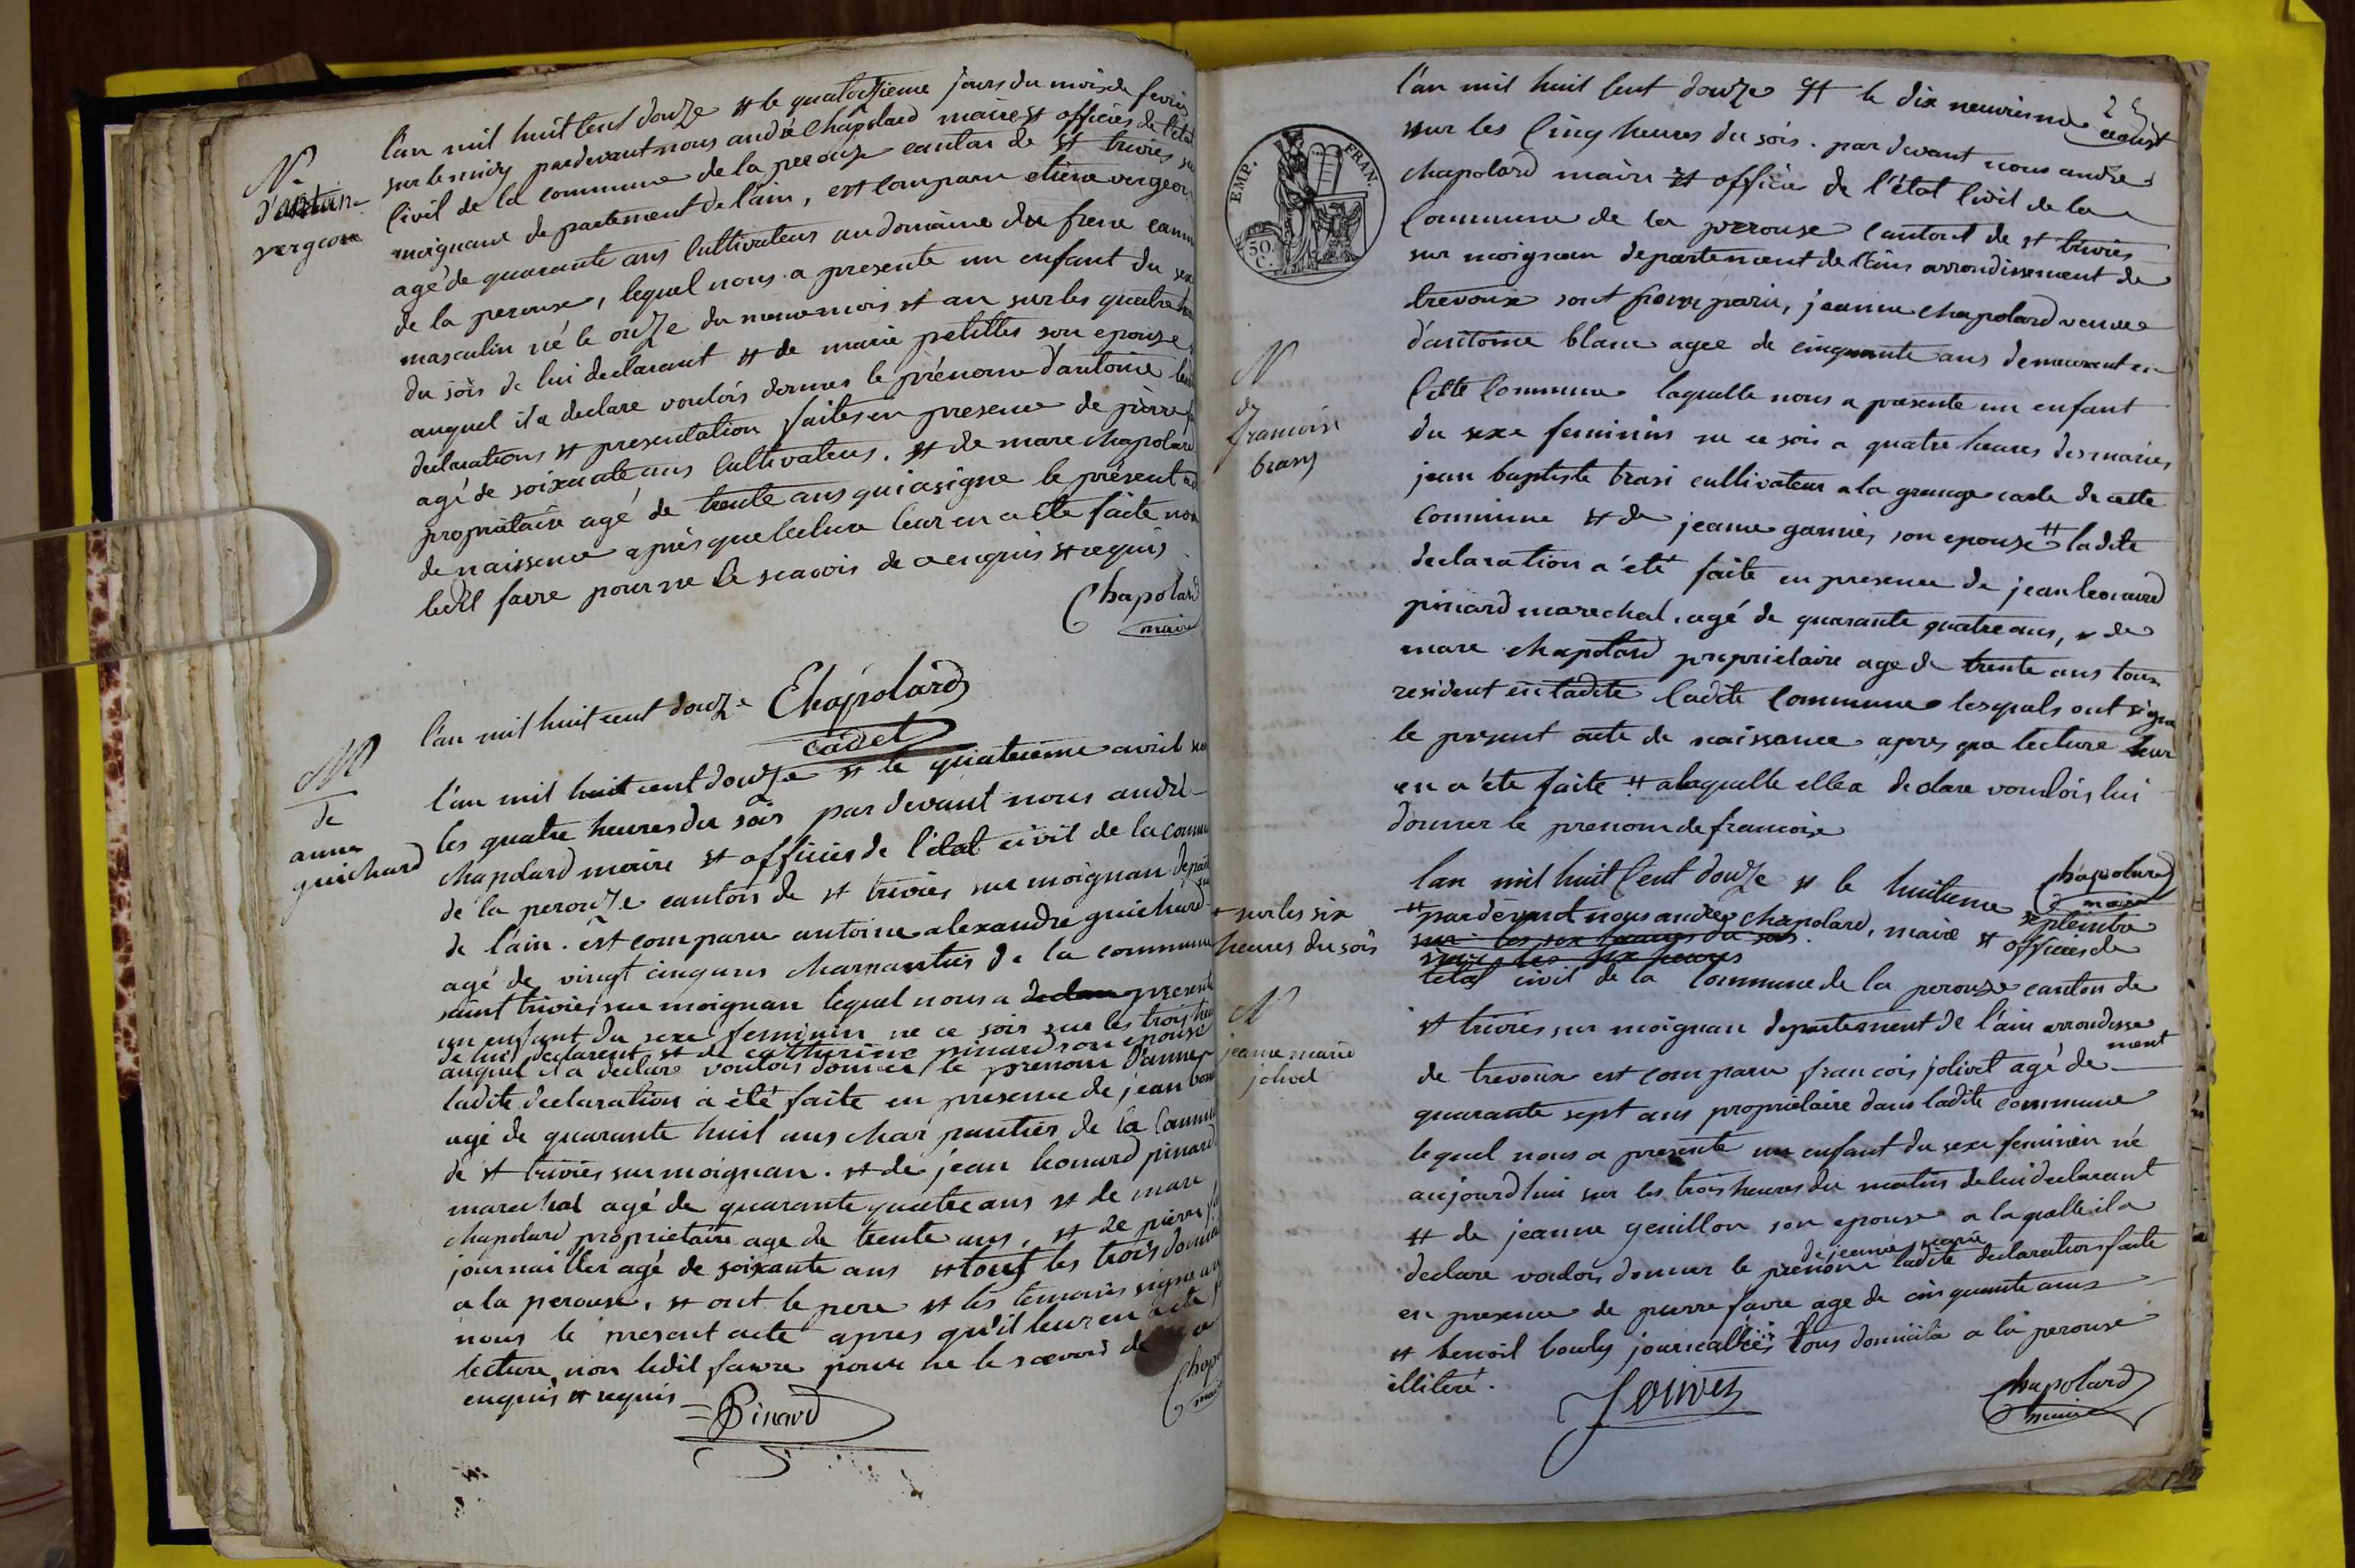 N.ce
d'antoine
vergeon
l'an mil huit cent douze et le quatorzieme jours du mois de fevrier
sur le midy pardevant nous andré Chapolard maire et officier de l'état
civil de la commune de la perouze canton de st trivier sur
moignans departement de l'ain, est comparu etiene vergeon
agé de quarante ans cultivateur au domaine du frene comm
de la perouse, lequel nous a presente un enfant du sexe
masculin né le onze du meme mois et an sur les quatre
du soir de lui declarant et de marie petittes son epouse
auquel il a declare vouloir donner le prénome d'antoine
declarations et presentation faites en presence de pierre
agé de soixante ans cultivateur. et de marc chapolard
proprietaire agé de trente ans qui a signe le présent
de naissence après que lecture leur en a eté faite non
ledit favre pour ne le scavoir de ce enquis et requis
Chapolard
maire
l'an mil huit cent douze Chapolard
cadet
N
de
anne
guichard
l'an mil huit cent douze et le quatrieme avril sur
les quatre heures du soir par devant nous andré
chapolard maire et officier de l'état civil de la commu
de la perouze canton de st trivier sur moignan depart
de l'ain. est comparu antoine alexandre guichard
agé de vingt cinq ans charpantier de la commune
saint trivier sur moignan lequel nous a declare presente
un enfant du sexe feminin ne ce soir sur les trois heu
de lui declarent et de catherine pinard son epouse
auquel il a declare vouloir donner le prenom d'anne
ladite declaration a été faite en presence de jean
agé de quarante huit ans charpantier de la commu
de st trivier sur moignan. et de jean leonard pinard
marechal agé de quarante quatre ans et de marc
chapolard proprietaire age de trente ans, et de pierre
journailler agé de soixante ans et tous les trois domici
a la perouse, et ont le pere et les temoins signe
nous le present acte apres qu'il leur en
lecture non ledit favre pour ne le scavoir de
enquis et requis
Pinard
Chapo
25
EMP. FRAN.
50 C.
l'an mil huit cent douze et le dix neuvieme aoust
sur les cinq heures du soir. par devant nous andre
chapolard maire et officier de l'état civil de la
commune de la perouse cantont de st trivier
sur moignan departement de l'ain arrondissement de
trevoux sont comparu, jeanne chapolard veuve
d'antoine blanc agee de cinquante ans demeurent en
cette commune laquelle nous a presente un enfant
N
de
francoise
brasy
du sexe feminin ne ce soir a quatre heures des mariés
jean baptiste brasi cultivateur a la grange carle de cette
commune et de jeanne garnier son epouse et ladite
declaration a été faite en presence de jean leonard
pinard marechal, agé de quarante quatre ans, et de
marc chapolard proprietaire age de trente ans tous
resident en ladite ladite commune lesquels ont signe
le present acte de naissance apres que lecture leur
en a été faite et a laquelle elle a declare vouloir lui
donner le prenom de francoise
Chapolard
maire
l'an mil huit cent douze et le huitieme septembre
+ sur les six
heures du soir
par devant nous andre chapolard, maire et officier de
sur les six heures du soir
sur les six heures
l'etat civil de la commune de la perouze canton de
N
jeanne marie
jolivet
st trivier sur moignan departement de l'ain arrondisse
ment
de trevoux est comparu francois jolivet agé de
quarante sept ans proprietaire dans ladite commune
lequel nous a presente un enfant du sexe feminien né
aujourdhui sur les trois heures du matin de lui declarant
et de jeanne genillon son epouse a laquelle il a
declare vouloir donner le prénom de jeanne marie ladite declaration faite
en presence de pierre favre age de cinquante ans
et benoit bouly journallier tous domicilié a la perouse
illiteré.
Jolivet
Chapolard
maire